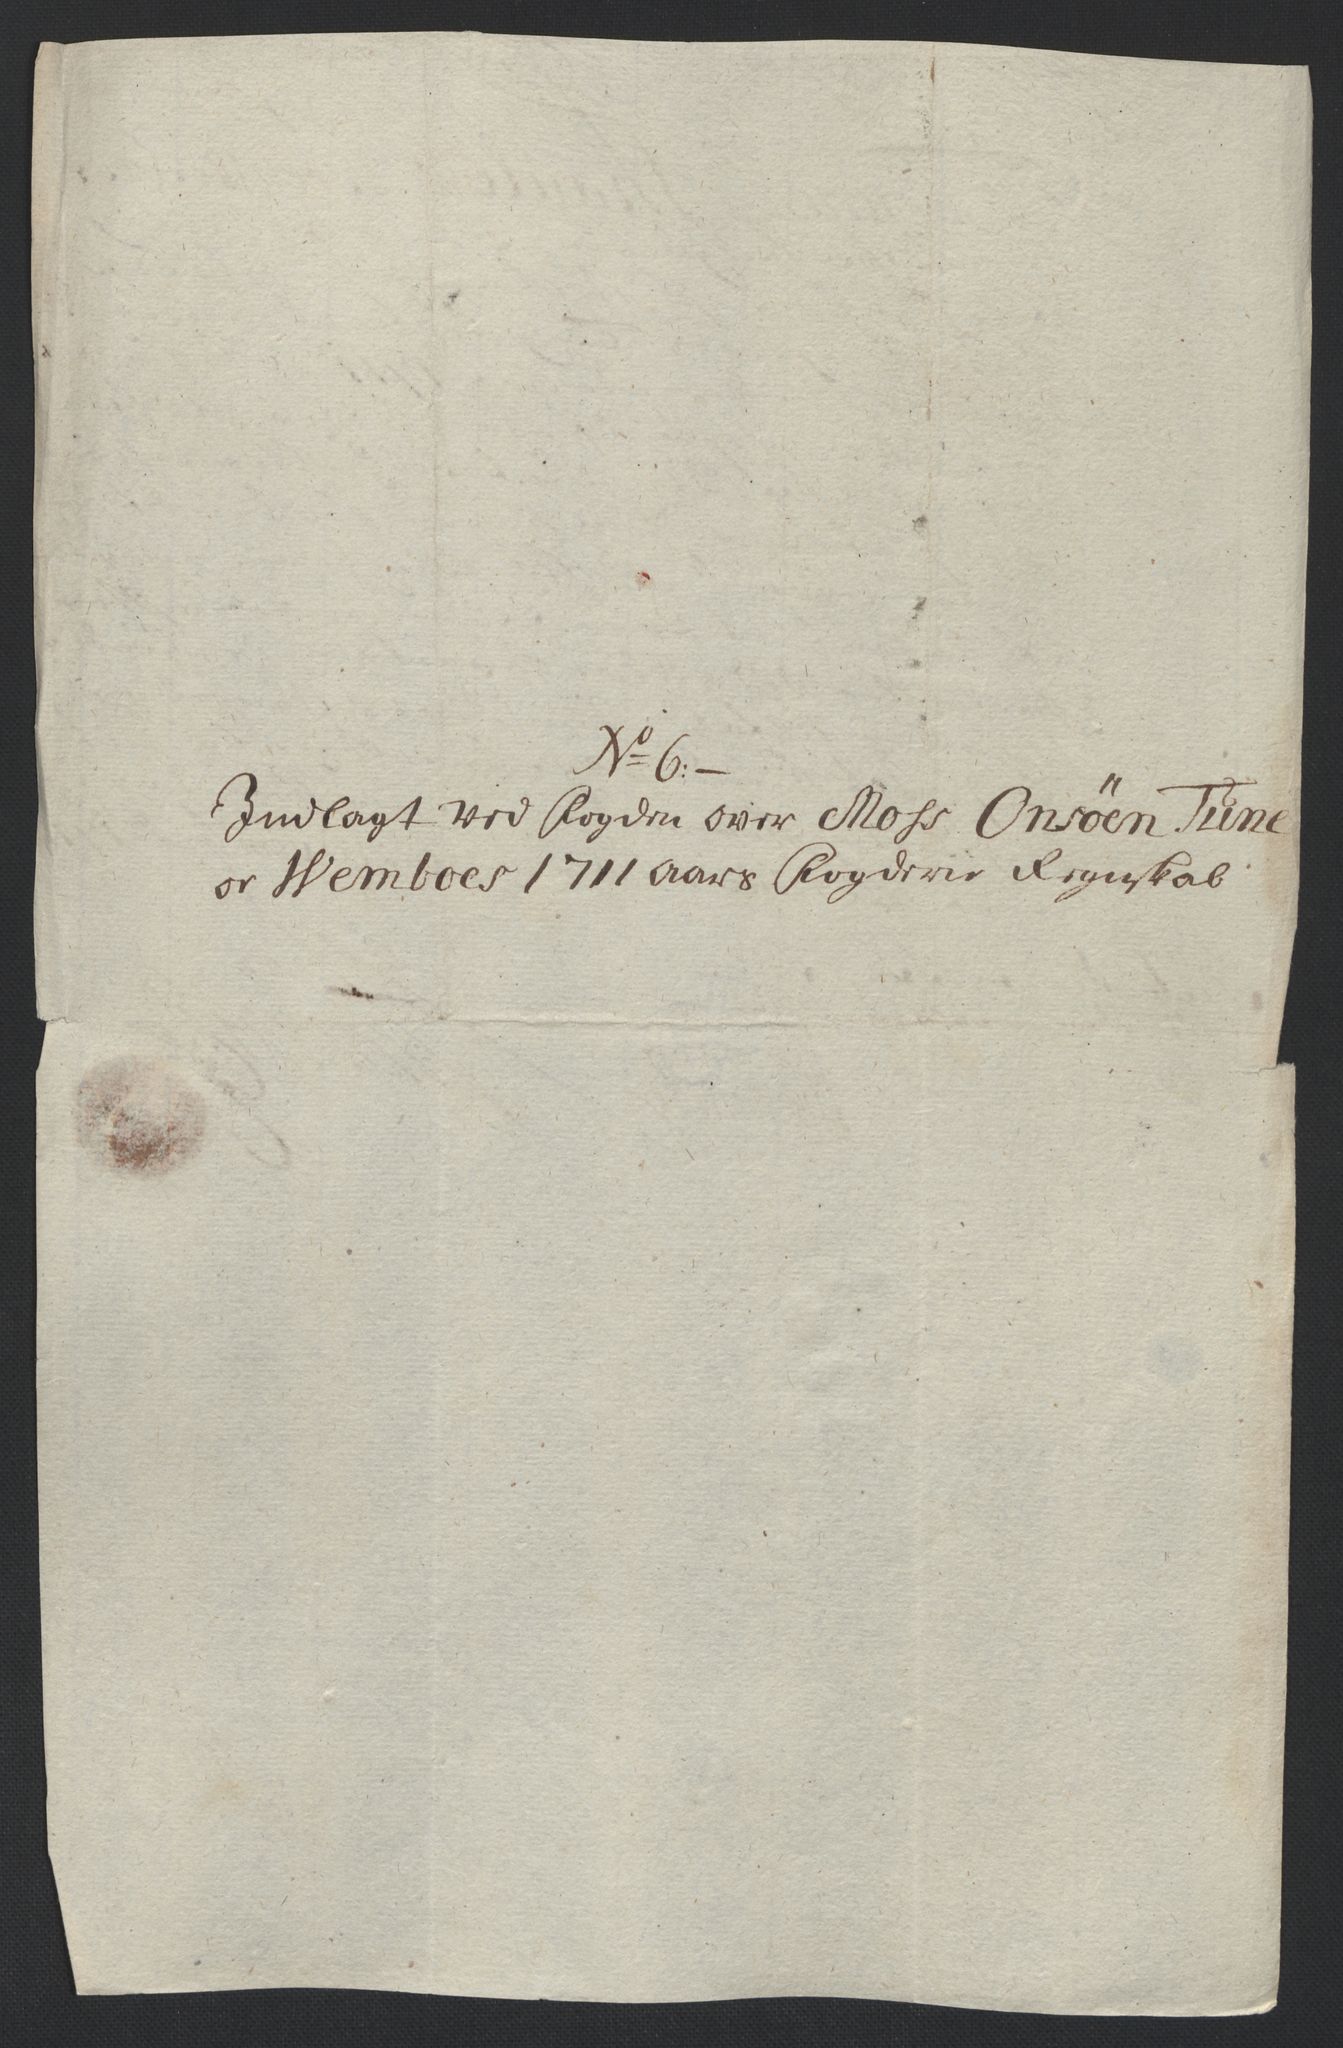 No 6:-
Indlagt ved Fogden over Moss Onsöen Tune
oc Wemboes 1711 aars Fogderie Regnskab